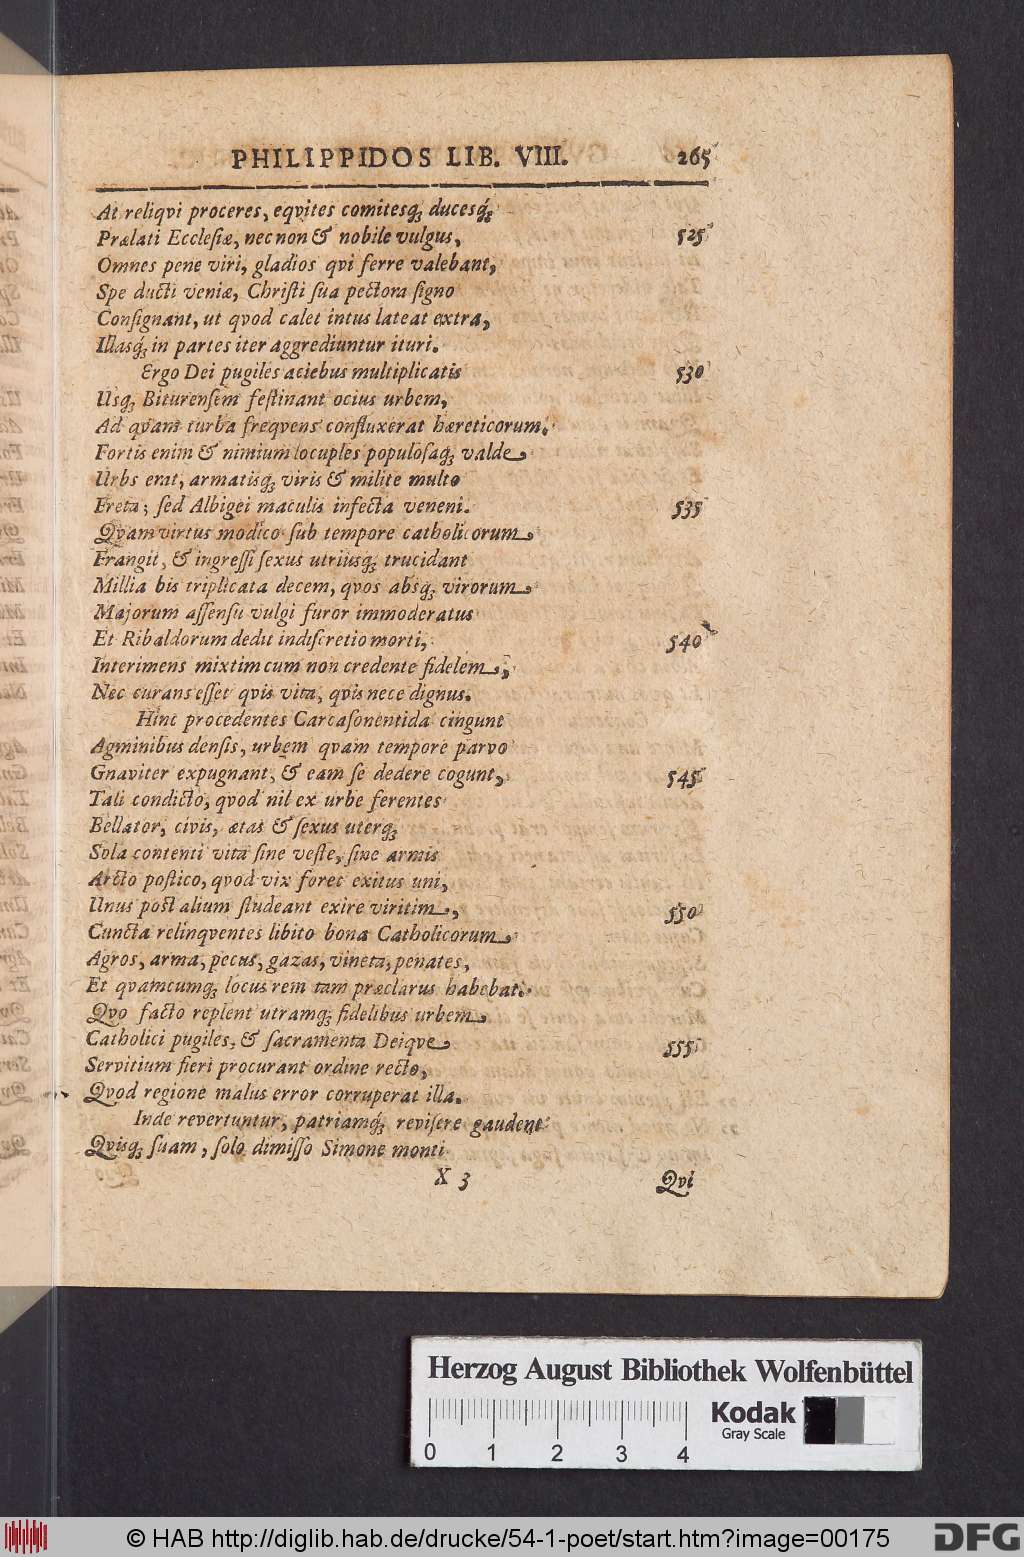 PHILIPPIDOS LIB. VIII. 265
At reliqvi proceres, eqvites comitesq́; ducesq́;
Prælati Ecclesiæ, nec non & nobile vulgus, 525
Omnes pene viri, gladios qvi ferre valebant,
Spe ducti veniæ, Christi sua pectora signo
Consignant, ut qvod calet intus lateat extra,
Illasq́; in partes iter aggrediuntur ituri.
Ergo Dei pugiles aciebus multiplicatis 530
Usq; Biturensem festinant ocius urbem,
Ad qvam turba freqvens confluxerat hæreticorum.
Fortis enim & nimium locuples populosaq; valde
Urbs erat, armatisq; viris & milite multo
Freta; sed Albigei maculis infecta veneni. 535
Qvam virtus modico sub tempore catholicorum
Frangit, & ingressi sexus utriusq; trucidant
Millia bis triplicata decem, qvos absq; virorum
Majorum assensu vulgi furor immoderatus
Et Ribaldorum dedit indiscretio morti, 540
Interimens mixtim cum non credente fidelem,
Nec curans esset qvis vita, qvis nece dignus.
Hinc procedentes Carcasonentida cingunt
Agminibus densis, urbem qvam tempore parvo
Gnaviter expugnant, & eam se dedere cogunt, 545
Tali condicto, qvod nil ex urbe ferentes
Bellator, civis, ætas & sexus uterq;
Sola contenti vita sine veste, sine armis
Arcto postico, qvod vix foret exitus uni,
Unus post alium studeant exire viritim, 550
Cuncta relinqventes libito bona Catholicorum
Agros, arma, pecus, gazas, vineta, penates,
Et qvamcumq; locus rem tam præclarus habebat.
Qvo facto replent utramq; fidelibus urbem
Catholici pugiles, & sacramenta Deiqve 555
Servitium fieri procurant ordine recto,
Qvod regione malus error corruperat illa.
Inde revertuntur, patriamq́; revisere gaudent
Qvisq; suam, solo dimisso Simone monti
X 3 Qvi
Herzog August Bibliothek Wolfenbüttel
Kodak
Gray Scale
0 1 2 3 4
© HAB http://diglib.hab.de/drucke/54-1-poet/start.htm?image=00175
DFG